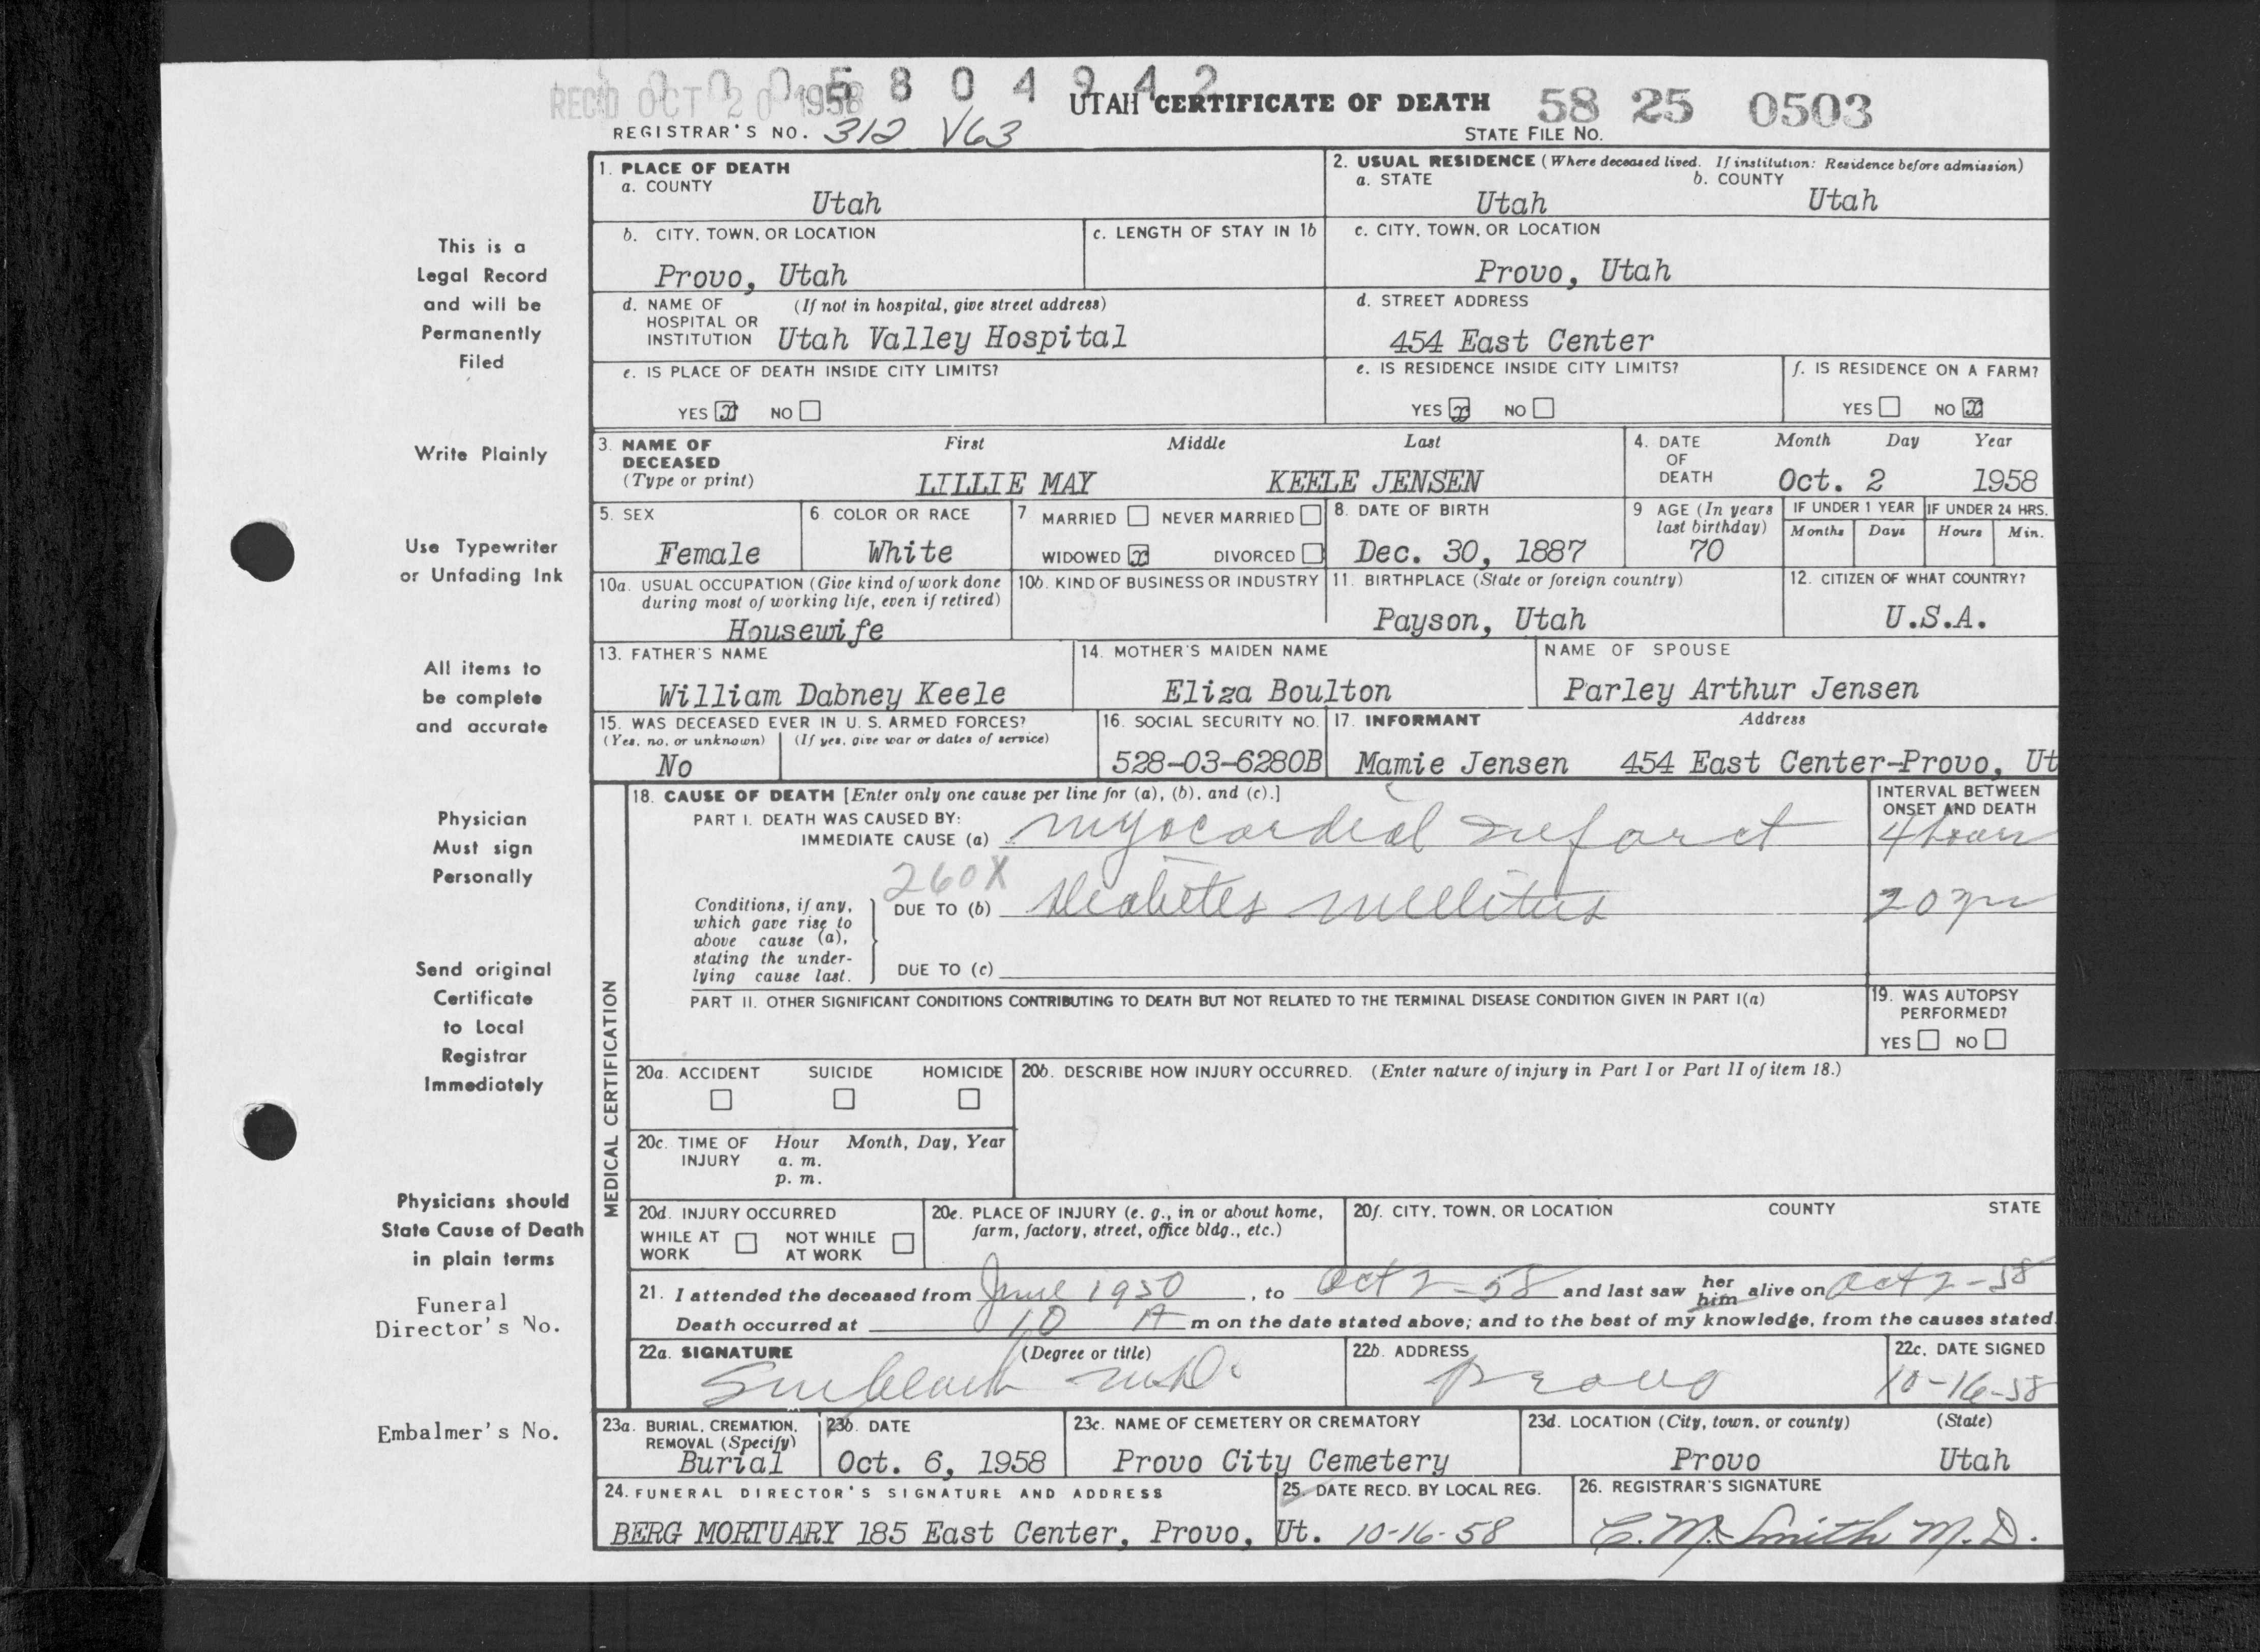 REC'D OCT 20 1958
5 8 0 4 9 4 2
UTAH CERTIFICATE OF DEATH 58 25 0503
REGISTRAR'S NO. 312 V63 STATE FILE NO.
This is a
Legal Record
and will be
Permanently
Filed
Write Plainly
Use Typewriter
or Unfading Ink
All items to
be complete
and accurate
Physician
Must sign
Personally
Send original
Certificate
to Local
Registrar
Immediately
Physicians should
State Cause of Death
in plain terms
Funeral
Director's No.
Embalmer's No.
1. PLACE OF DEATH
a. COUNTY
Utah
2. USUAL RESIDENCE (Where deceased lived. If institution: Residence before admission)
a. STATE b. COUNTY
Utah Utah
b. CITY, TOWN, OR LOCATION
Provo, Utah
c. LENGTH OF STAY IN 1b
c. CITY, TOWN, OR LOCATION
Provo, Utah
d. NAME OF (If not in hospital, give street address)
HOSPITAL OR
INSTITUTION Utah Valley Hospital
d. STREET ADDRESS
454 East Center
e. IS PLACE OF DEATH INSIDE CITY LIMITS?
YES x NO
e. IS RESIDENCE INSIDE CITY LIMITS?
YES x NO
f. IS RESIDENCE ON A FARM?
YES NO x
3. NAME OF First Middle Last
DECEASED
(Type or print) LILLIE MAY KEELE JENSEN
4. DATE Month Day Year
OF
DEATH Oct. 2 1958
5. SEX
Female
6. COLOR OR RACE
White
7 MARRIED NEVER MARRIED
WIDOWED x DIVORCED
8. DATE OF BIRTH
Dec. 30, 1887
9 AGE (In years
last birthday)
70
IF UNDER 1 YEAR
Months Days
IF UNDER 24 HRS.
Hours Min.
10a. USUAL OCCUPATION (Give kind of work done
during most of working life, even if retired)
Housewife
10b. KIND OF BUSINESS OR INDUSTRY
11. BIRTHPLACE (State or foreign country)
Payson, Utah
12. CITIZEN OF WHAT COUNTRY?
U.S.A.
13. FATHER'S NAME
William Dabney Keele
14. MOTHER'S MAIDEN NAME
Eliza Boulton
NAME OF SPOUSE
Parley Arthur Jensen
15. WAS DECEASED EVER IN U. S. ARMED FORCES?
(Yes, no, or unknown) (If yes, give war or dates of service)
No
16. SOCIAL SECURITY NO.
528-03-6280B
17. INFORMANT Address
Mamie Jensen 454 East Center-Provo, Ut
MEDICAL CERTIFICATION
18. CAUSE OF DEATH [Enter only one cause per line for (a), (b), and (c).]
PART I. DEATH WAS CAUSED BY:
IMMEDIATE CAUSE (a) myocardial infarct
INTERVAL BETWEEN
ONSET AND DEATH
4 hours
260X
Conditions, if any,
which gave rise to
above cause (a),
stating the under-
lying cause last.
DUE TO (b) Diabetes mellitus
20 yr
DUE TO (c)
PART II. OTHER SIGNIFICANT CONDITIONS CONTRIBUTING TO DEATH BUT NOT RELATED TO THE TERMINAL DISEASE CONDITION GIVEN IN PART I(a)
19. WAS AUTOPSY
PERFORMED?
YES NO
20a. ACCIDENT SUICIDE HOMICIDE
20b. DESCRIBE HOW INJURY OCCURRED. (Enter nature of injury in Part I or Part II of item 18.)
20c. TIME OF Hour Month, Day, Year
INJURY a. m.
p. m.
20d. INJURY OCCURRED
WHILE AT NOT WHILE
WORK AT WORK
20e. PLACE OF INJURY (e. g., in or about home,
farm, factory, street, office bldg., etc.)
20f. CITY, TOWN, OR LOCATION COUNTY STATE
21. I attended the deceased from June 1950, to Oct 2-58 and last saw her him alive on Oct 2-58
Death occurred at 10 A m on the date stated above; and to the best of my knowledge, from the causes stated.
22a. SIGNATURE (Degree or title)
M.D.
22b. ADDRESS
Provo
22c. DATE SIGNED
10-16-58
23a. BURIAL, CREMATION,
REMOVAL (Specify)
Burial
23b. DATE
Oct. 6, 1958
23c. NAME OF CEMETERY OR CREMATORY
Provo City Cemetery
23d. LOCATION (City, town, or county) (State)
Provo Utah
24. FUNERAL DIRECTOR'S SIGNATURE AND ADDRESS
BERG MORTUARY 185 East Center, Provo, Ut.
25. DATE RECD. BY LOCAL REG.
10-16-58
26. REGISTRAR'S SIGNATURE
C. M. Smith M. D.